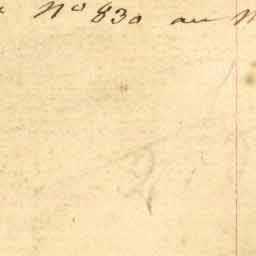 Nº 830 au